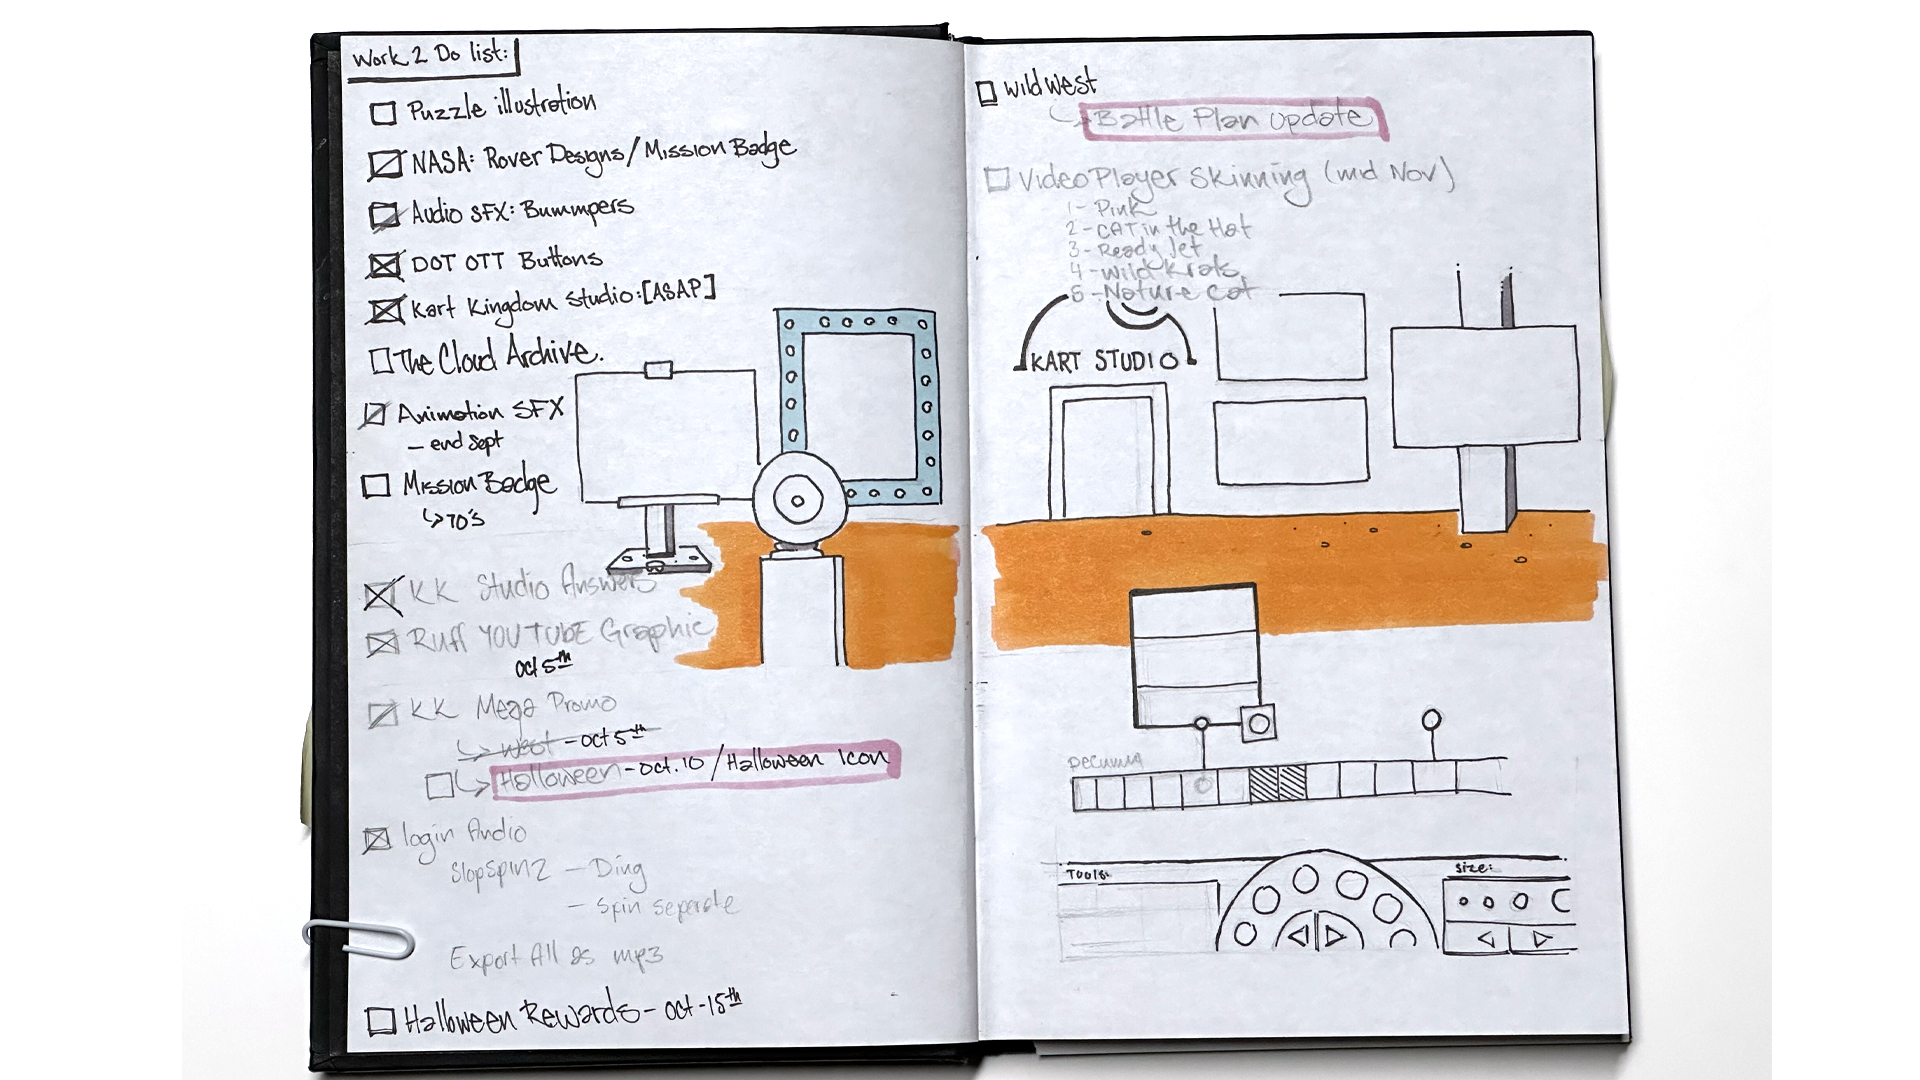 Work 2 Do list:
Puzzle illustration
NASA: Rover Designs/Mission Badge
Audio SFX: Bummpers
DOT OTT Buttons
Kart Kingdom Studio:[ASAP]
The Cloud Archive.
Animation SFX
- end Sept
Mission Badge
↳70's
KK Studio Answers
Ruff YOUTUBE Graphic
Oct 5th
KK Mega Promo
↳ West - Oct 5th
↳ Halloween - Oct. 10 / Halloween Icon
login Audio
SlopSpin2 - Ding
- Spin Separate
Export All as mp3
Halloween Rewards - Oct - 15th
wild west
↳ Battle Plan Update
Video Player Skinning (mid Nov)
1- Pink
2- CAT in the Hat
3- Ready Jet
4- Wild Krats
5- Nature Cat
KART STUDIO
Tools
Size: